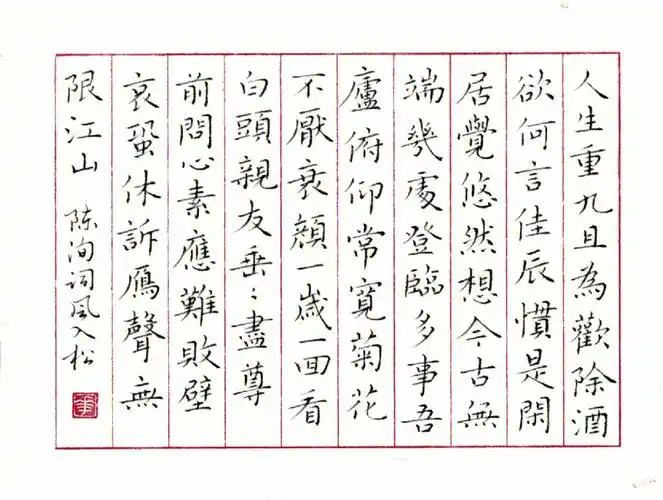 人生重九且為歡除酒
欲何言佳辰慣是閑
居覺悠然想今古無
端幾處登臨多事吾
廬俯仰常寬菊花
不厭衰顏一歲一回看
白頭親友垂〻盡尊
前問心素應難敗壁
哀蛩休訴雁聲無
限江山 陈洵词风入松